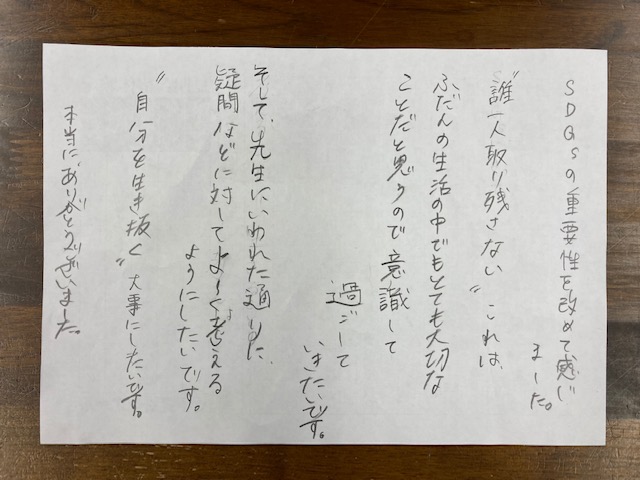 SDGsの重要性を改めて感じ
ました。
"誰一人取り残さない"これは、
ふだんの生活の中でもとても大切な
ことだと思うので意識して
過ごして
いきたいです。
そして、先生にいわれた通りに、
疑問などに対してよ〜く考える
ようにしたいです。
"自分を生き抜く"大事にしたいです。
本当に、ありがとうございました。